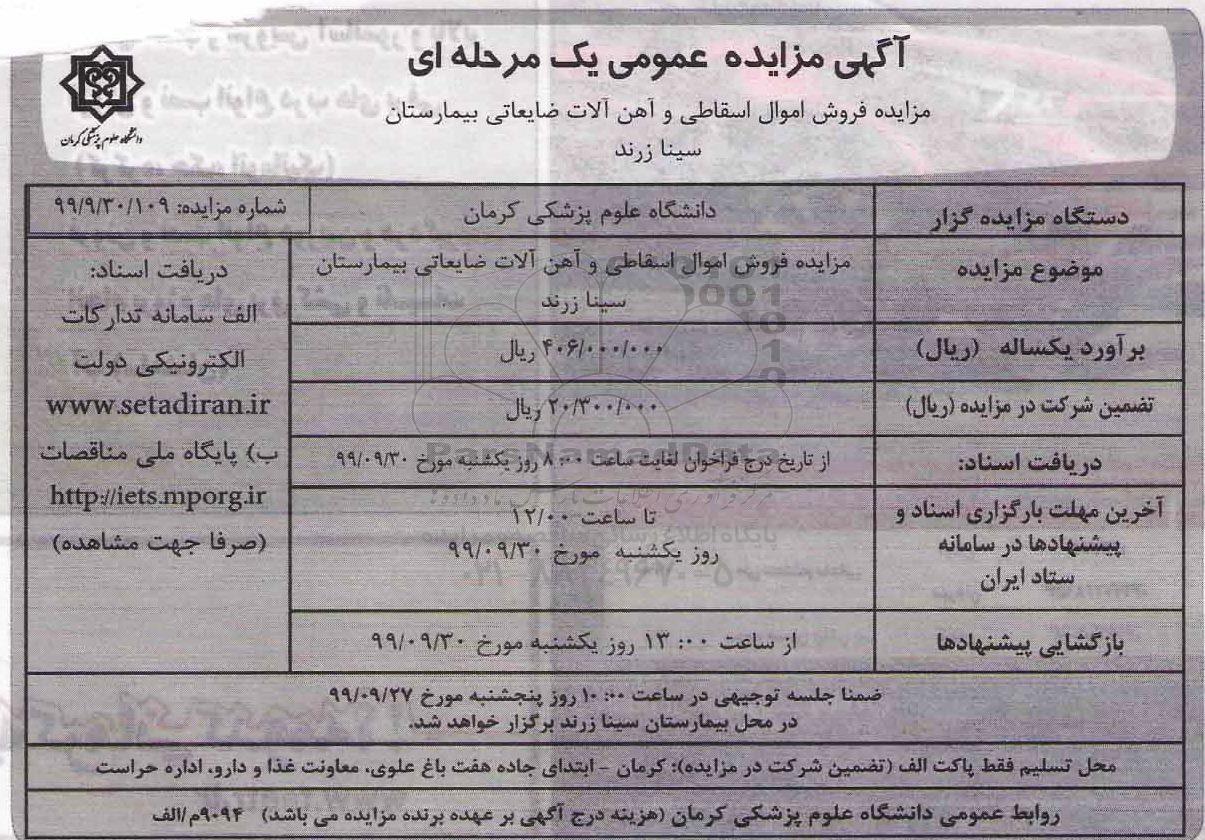 آگهی مزایده عمومی یک مرحله ای
مزایده فروش اموال اسقاطی و آهن آلات ضایعاتی بیمارستان
سینا زرند
دانشگاه علوم پزشکی کرمان
دستگاه مزایده گزار
دانشگاه علوم پزشکی کرمان
شماره مزایده: ۹۹/۹/۳۰/۱۰۹
موضوع مزایده
مزایده فروش اموال اسقاطی و آهن آلات ضایعاتی بیمارستان
سینا زرند
برآورد یکساله (ریال)
۴۰۶/۰۰۰/۰۰۰ ریال
تضمین شرکت در مزایده (ریال)
۲۰/۳۰۰/۰۰۰ ریال
دریافت اسناد:
از تاریخ درج فراخوان لغایت ساعت ۸:۰۰ روز یکشنبه مورخ ۹۹/۰۹/۳۰
آخرین مهلت بارگزاری اسناد و
پیشنهادها در سامانه
ستاد ایران
تا ساعت ۱۲/۰۰
روز یکشنبه مورخ ۹۹/۰۹/۳۰
بازگشایی پیشنهادها
از ساعت ۱۳:۰۰ روز یکشنبه مورخ ۹۹/۰۹/۳۰
دریافت اسناد:
الف سامانه تدارکات
الکترونیکی دولت
www.setadiran.ir
ب) پایگاه ملی مناقصات
http://iets.mporg.ir
(صرفا جهت مشاهده)
ضمنا جلسه توجیهی در ساعت ۱۰:۰۰ روز پنجشنبه مورخ ۹۹/۰۹/۲۷
در محل بیمارستان سینا زرند برگزار خواهد شد.
محل تسلیم فقط پاکت الف (تضمین شرکت در مزایده): کرمان - ابتدای جاده هفت باغ علوی، معاونت غذا و دارو، اداره حراست
روابط عمومی دانشگاه علوم پزشکی کرمان (هزینه درج آگهی بر عهده برنده مزایده می باشد) ۹۰۹۴م/الف
ParsNamadData